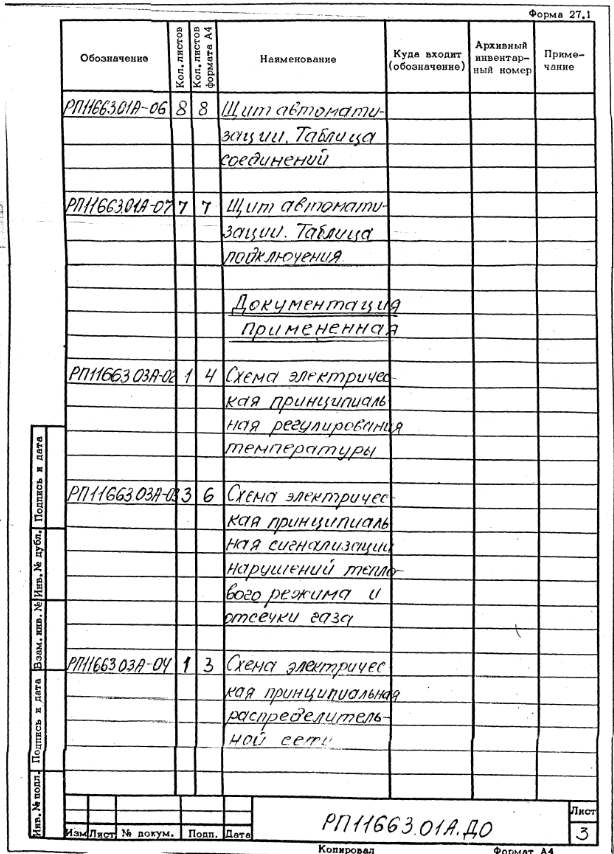 Форма 27.1
Обозначение
Кол. листов
Кол. листов
формата А4
Наименование
Куда входит
(обозначение)
Архивный
инвентар-
ный номер
Приме-
чание
РП11663.01А-06 8 8 Щит автомати-
зации. Таблица
соединений
РП11663.01А-07 7 7 Щит автомати-
зации. Таблица
подключения
Документация
примененная
РП11663.03А-02 1 4 Схема электричес-
кая принципиаль
ная регулирования
температуры
РП11663.03А-03 3 6 Схема электричес
кая принципиаль
ная сигнализации
нарушений тепло-
вого режима и
отсечки газа
РП11663.03А-04 1 3 Схема электричес
кая принципиальная
распределитель-
ной сети
Инв. № подл. Подпись и дата Взам. инв. № Инв. № дубл. Подпись и дата
Изм Лист № докум. Подп. Дата
РП11663.01А.ДО
Лист
3
Копировал Формат А4